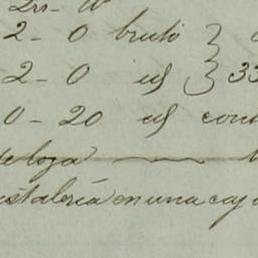 2 - 0 bruto }
2 - 0 id } 33
0 - 20 id con
de loza
istalería en una caj